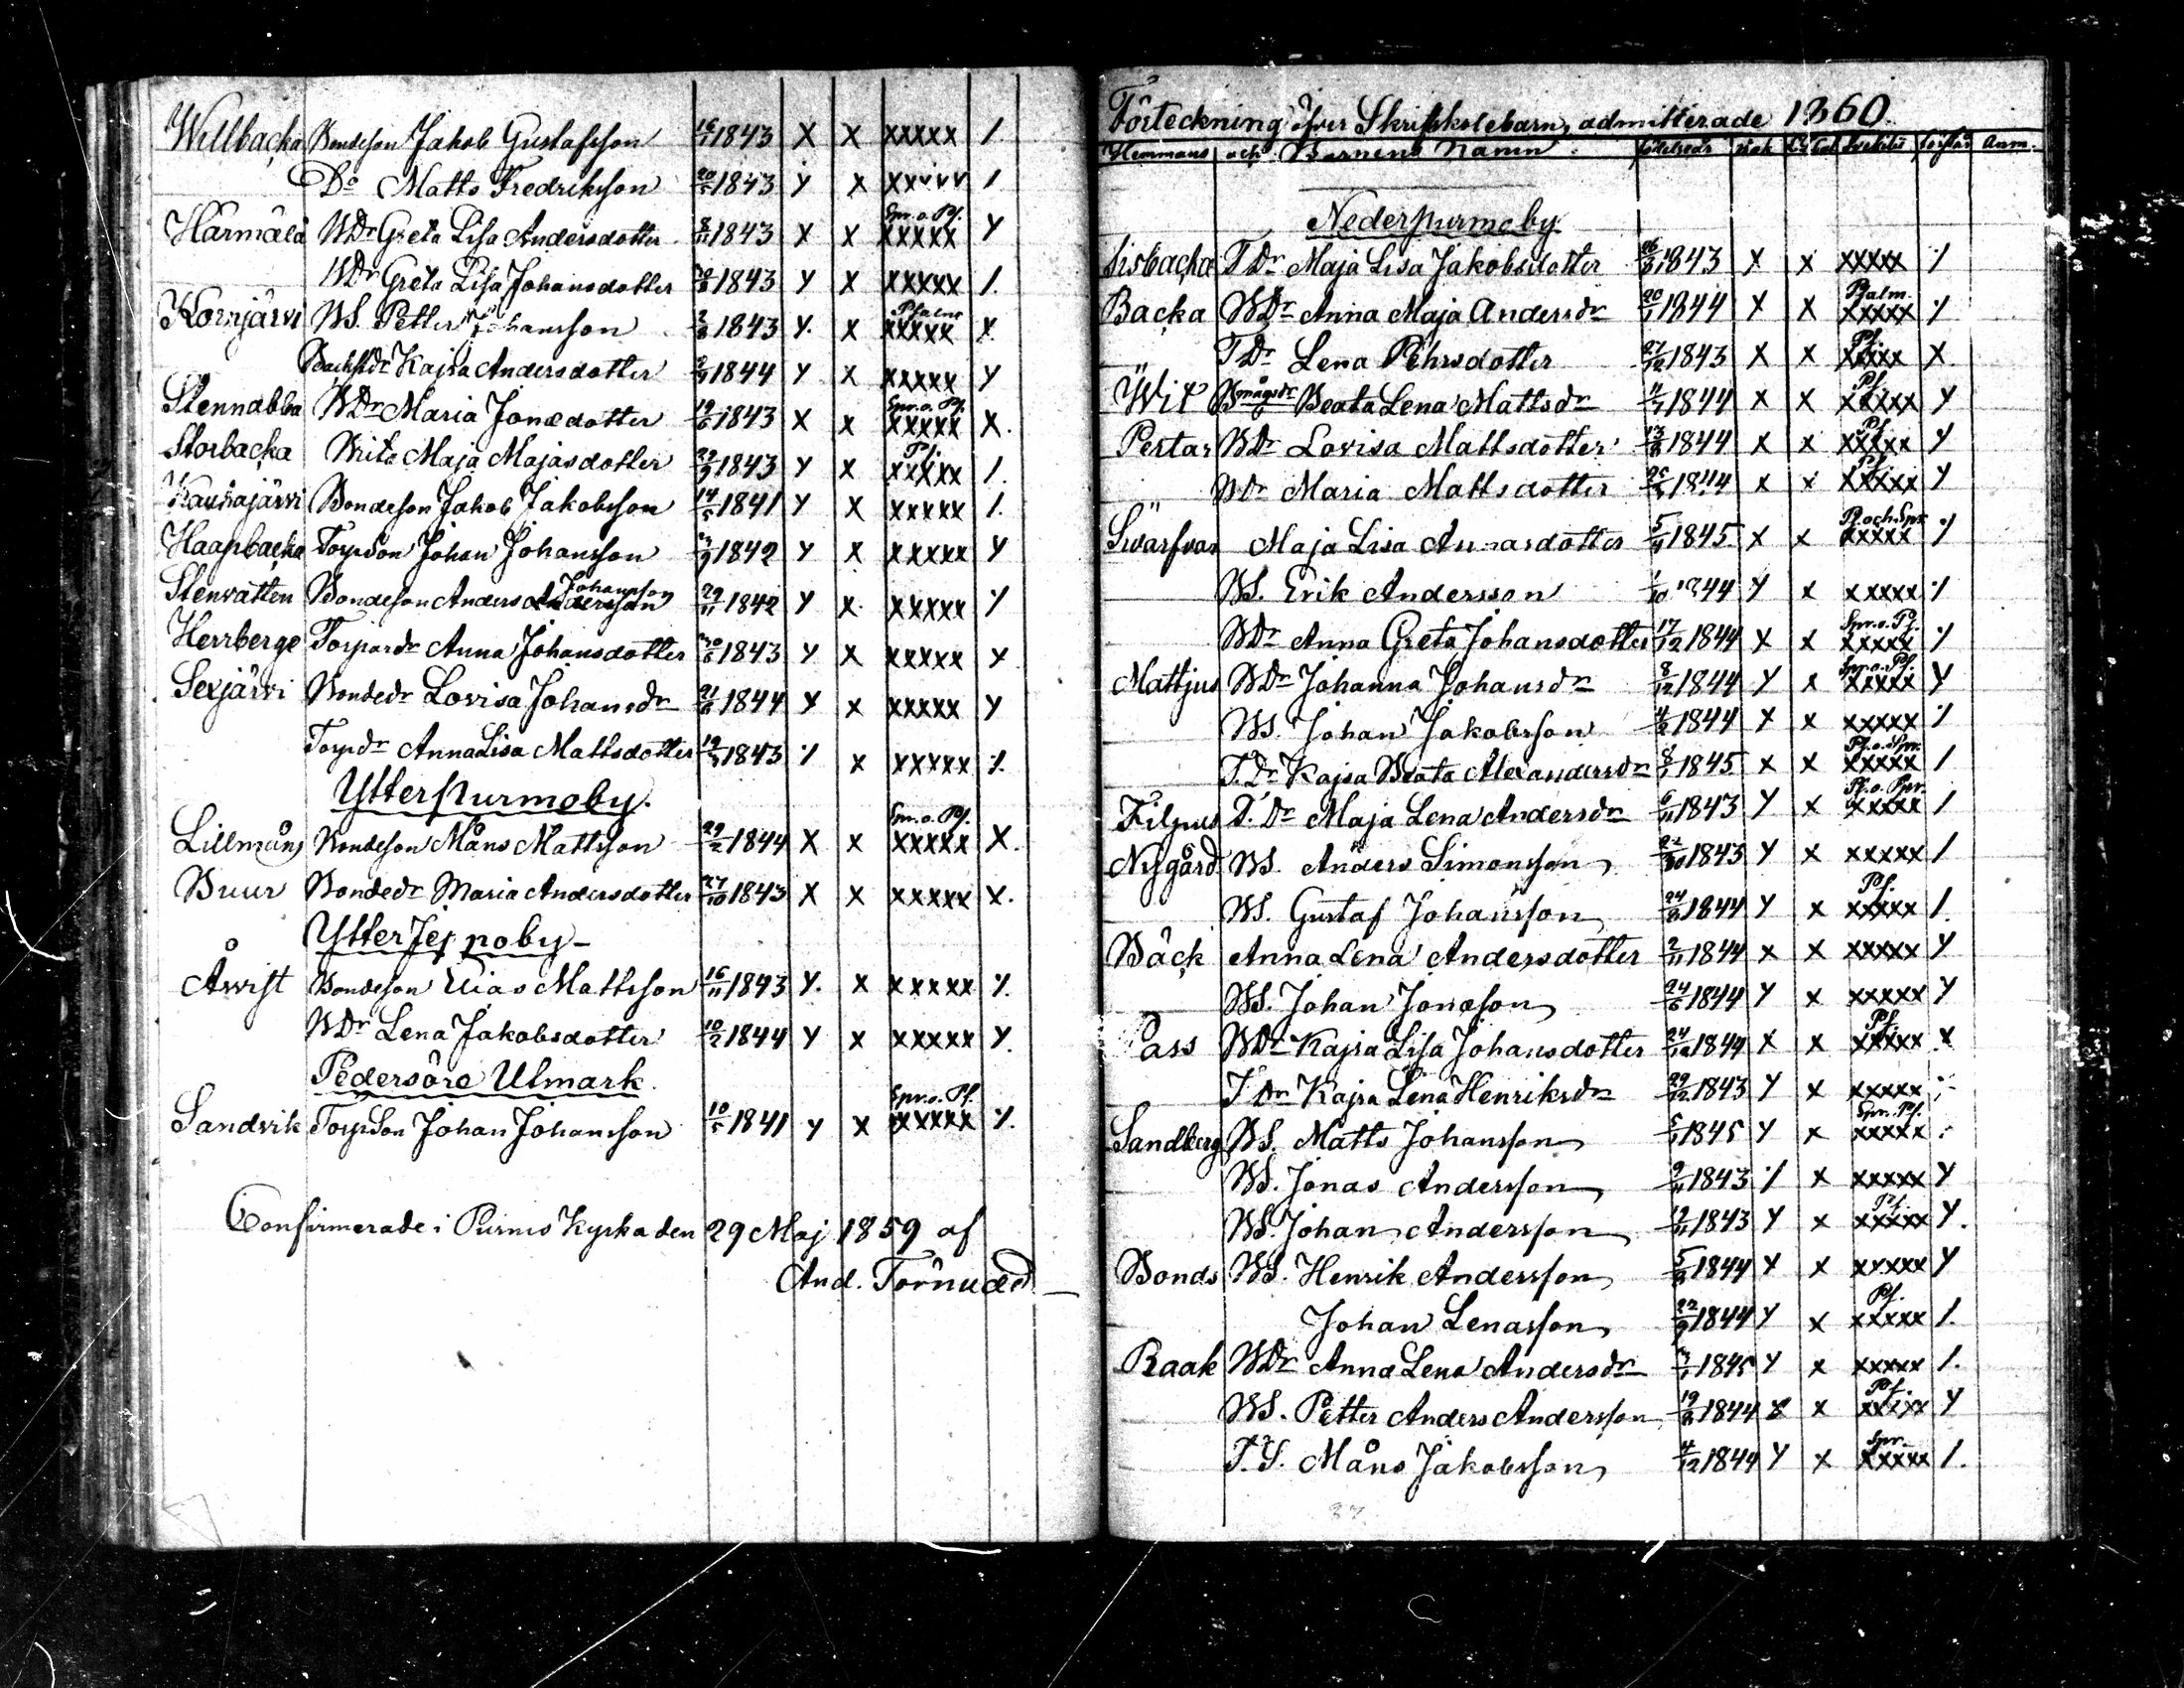 Willbacka Bondeson Jakob Gustafsson 16/1 1843 X X XXXXX /.
Do Matts Fredriksson 20/5 1843 Y X XXVVV /
Härmälä BDr Greta Lisa Andersdotter 8/11 1843 X X Spr. o. Ps. XXXXX Y
BDr Greta Lisa Johansdotter 1843 Y X XXXXX /.
Kornjärvi BS. Petter Johansson 2/8 1843 Y. X Psalm XXXXX X
Backstdr Kajsa Andersdotter 1844 Y X XXXXX Y
Stennabba BDr Maria Jonædotter 19/6 1843 X X Spr. o. Ps. XXXXX X.
Storbacka Brita Maja Majasdotter 22/9 1843 Y X Ps. XXXXX /.
Kauhajärvi Bondeson Jakob Jakobsson 14/5 1841 Y X XXXXX /.
Haapbacka Torpson Johan Johansson 1842 Y X XXXXX Y
Stenvatten Bondeson Anders Andersson Johansson 29/11 1842 Y X. XXXXX Y
Herrberge Torpardr Anna Johansdotter 30/6 1843 Y X XXXXX Y
Sexjärvi Bondedr Lovisa Johansdr 21/6 1844 Y X XXXXX Y
Torpdr Anna Lisa Mattsdotter 1843 ⁒ X XXXXX ⁒.
Ytterpurmoby.
Lillmåns Bondeson Måns Mattsson 29/2 1844 X X Spr. o. Ps. XXXXX X.
Buur Bondedr Maria Andersdotter 27/10 1843 X X XXXXX X.
Ytter Jeppoby
Åvist Bondeson Elias Mattsson 16/11 1843 Y. X XXXXX Y.
BDr Lena Jakobsdotter 10/2 1844 Y X XXXXX Y.
Pedersöre Utmark.
Sandvik Torpson Johan Johansson 10/5 1841 Y X Spr. o. Ps. XXXXX ⁒.
Confirmerade i Purmo Kyrka den 29 Maj 1859 af
And. Törnudd
Förteckning öfver Skriftskolebarn, admitterade 1860.
Hemmans och Barnens Namn födelseår Anm.
Nederpurmoby
Sisbacka T Dr Maja Lisa Jakobsdotter 1843 X X XXXXX ⁒
Backa BDr Anna Maja Andersdr 20/1 1844 X X Psalm. XXXXX ⁒
T Dr Lena Pehrsdotter 27/12 1843 X X Ps. XXXXX X
Wit Bmågsdr Beata Lena Mattsdr 1844 X X Ps. XXXXX Y
Pertar BDr Lovisa Mattsdotter 13/8 1844 X X Ps. XXXXX Y
BDr Maria Mattsdotter 1844 X X Ps. XXXXX Y
Swarfvar Maja Lisa Annasdotter 1845 X X Ps. och Spr. XXXXX ⁒
BS. Erik Andersson 1/10 1844 Y X XXXXX ⁒
BDr Anna Greta Johansdotter 17/12 1844 X X Spr. o. Ps. XXXXX ⁒
Mattjus BDr Johanna Johansdr 8/12 1844 Y X Spr. o. Ps. XXXXX Y
BS. Johan Jakobsson 1844 Y X XXXXX ⁒
T. Dr Kajsa Beata Alexandersdr 1845 X X Ps. o. Spr. XXXXX /
Filpus T. Dr Maja Lena Andersdr 6/11 1843 Y X Ps. o. Spr. XXXXX /
Nygård BS. Anders Simonsson 22/10 1843 Y X XXXXX /
BS. Gustaf Johansson 24/8 1844 Y X Ps. XXXXX /.
Bäck Anna Lena Andersdotter 2/11 1844 X X XXXXX Y
BS. Johan Jonæson 24/6 1844 Y X XXXXX Y
Pass BDr Kajsa Lisa Johansdotter 1844 X X Ps. XXXXX X
T Dr Kajsa Lena Henriksdr 29/12 1843 Y X XXXXX
Sandberg BS. Matts Johansson 1845 Y X Spr. Ps. XXXXX
BS. Jonas Andersson 9/11 1843 ⁒ X XXXXX Y
BS. Johan Andersson 12/11 1843 Y X Ps. XXXXX Y.
Bonds BS. Henrik Andersson 1844 Y X XXXXX Y
Johan Lenasson 22/9 1844 Y X Ps. XXXXX /.
Raak BDr Anna Lena Andersdr 1845 Y X XXXXX /.
BS. Petter Anders Andersson 19/8 1844 X X Ps. XXXXX Y
T. S. Måns Jakobsson 4/12 1844 Y X Spr. XXXXX /.
37